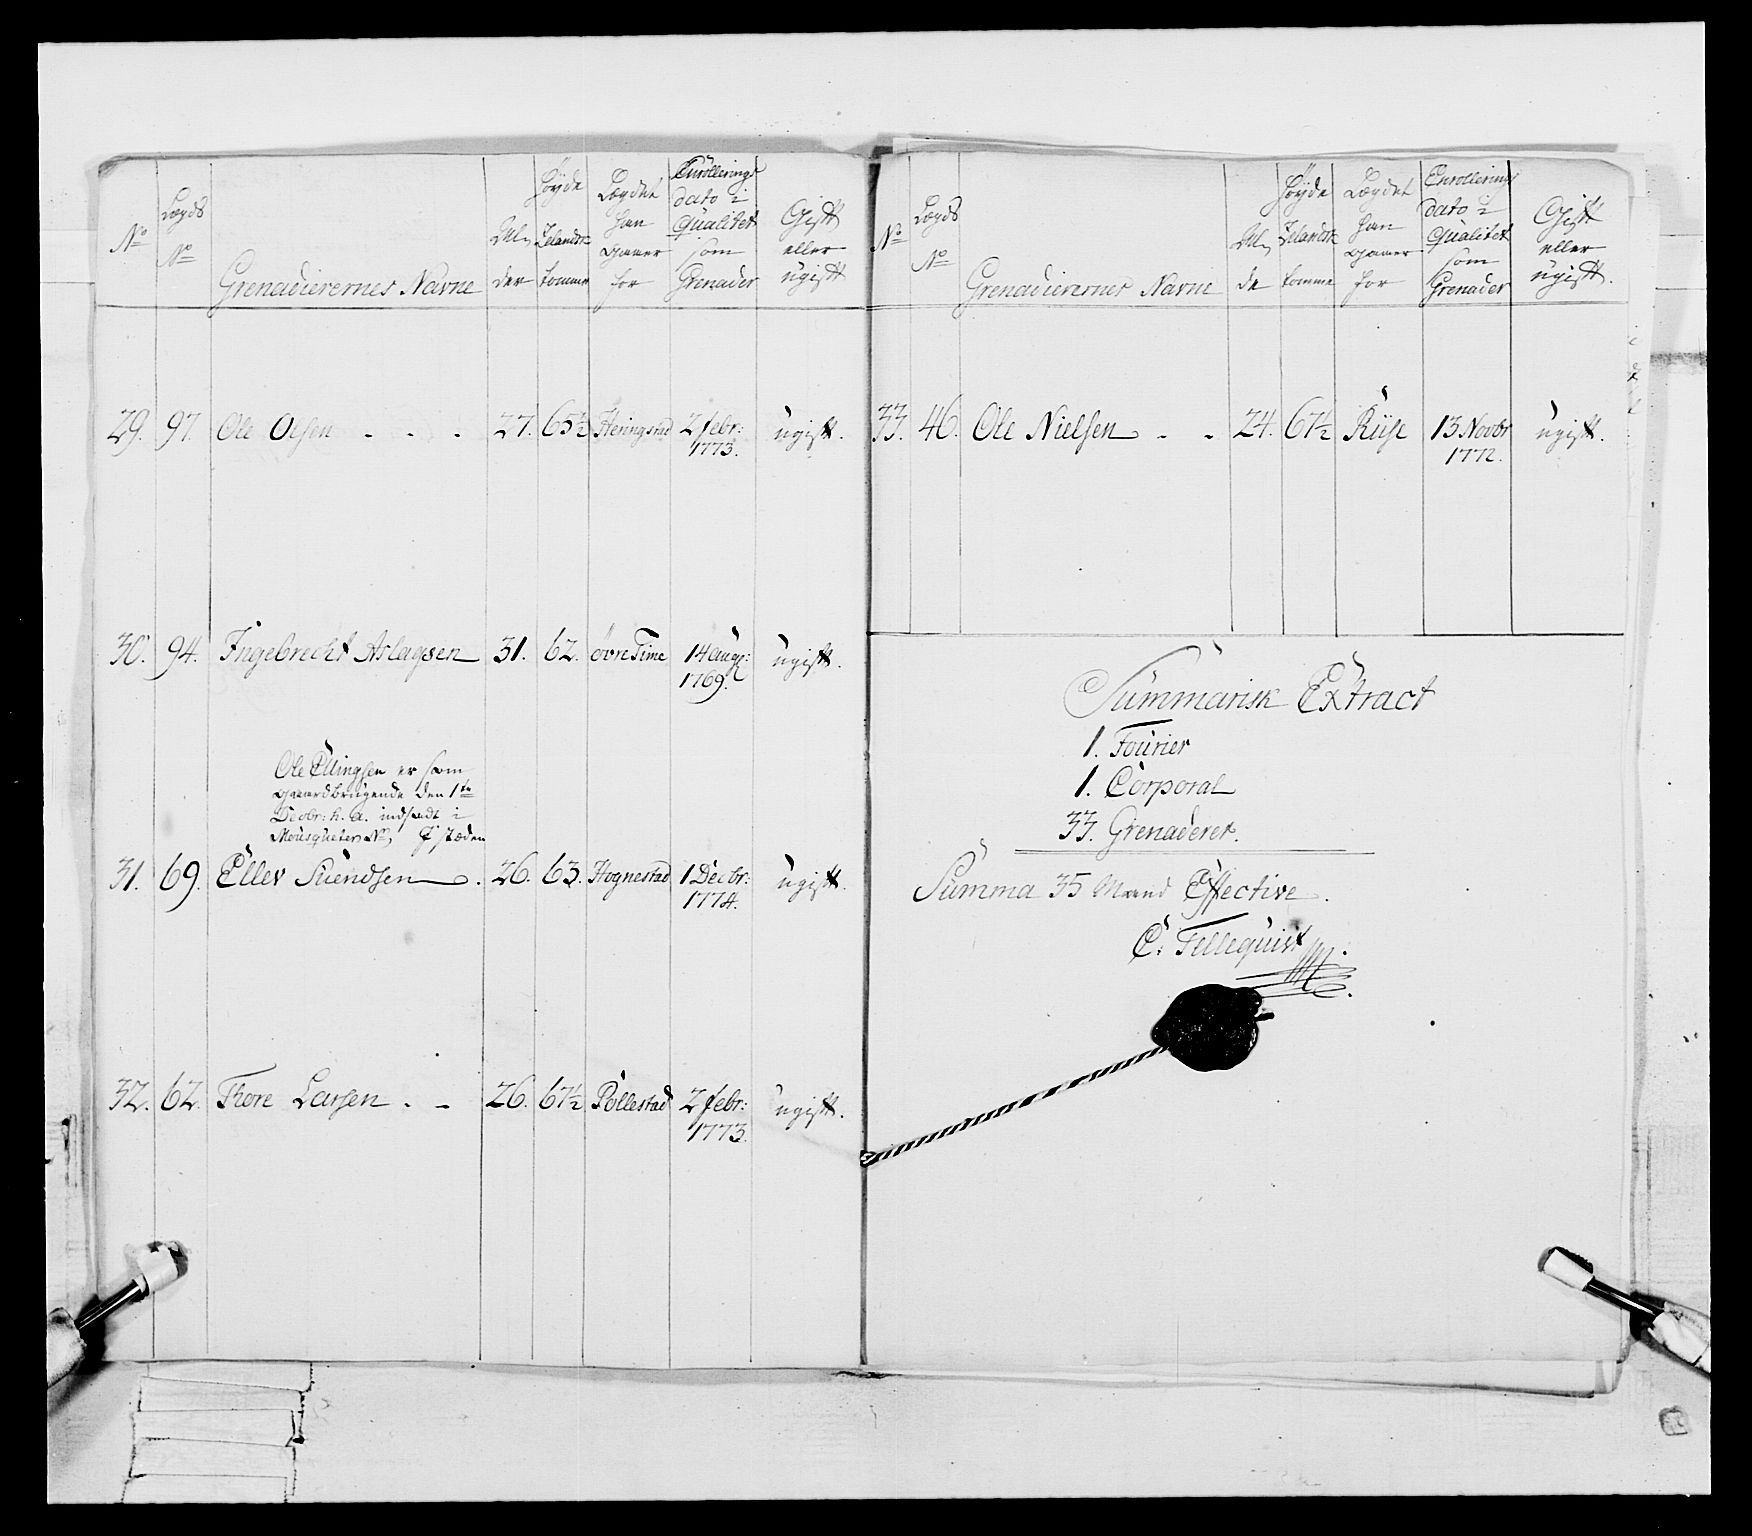 No
Lægds No
Grenadierernes Navne
Alder
Höyde Zelandske tommer
Lægdet han gaaer for
Enrollerings dato i Qualitet som Grenader
Gift eller ugift
29. 97. Ole Olsen - - - 27. 65½ Heringstad 2 febr: 1773. ugift.
30. 94. Ingebrecht Aslagsen 31. 62. övre Time 14 aug: 1769. ugift.
Ole Ellingsen er som
gaardbrugende den 1te
Decbr: h. a. indsendt i
Mousqueter No, i stæden
31. 69. Eller Suendsen. 26. 63. Hognestad 1 Decbr: 1774. ugift.
32. 62. Thore Larsen. - 26. 67½ Pollestad 2 febr: 1773. ugift.
No
Lægds No
Grenadierernes Navne
Alde
Höyde Zelandske tomme
Lægdet han gaaer for
Enrollerings dato i Qualitet som Grenader
Gift eller ugift.
33. 46. Ole Nielsen - - 24. 67½ Riise 13 Novbr 1772. ugift.
Summarisk Extract
1. Fourier
1. Corporal
33. Grenaderer.
Summa 35 Mand Effective.
C: Tellequist